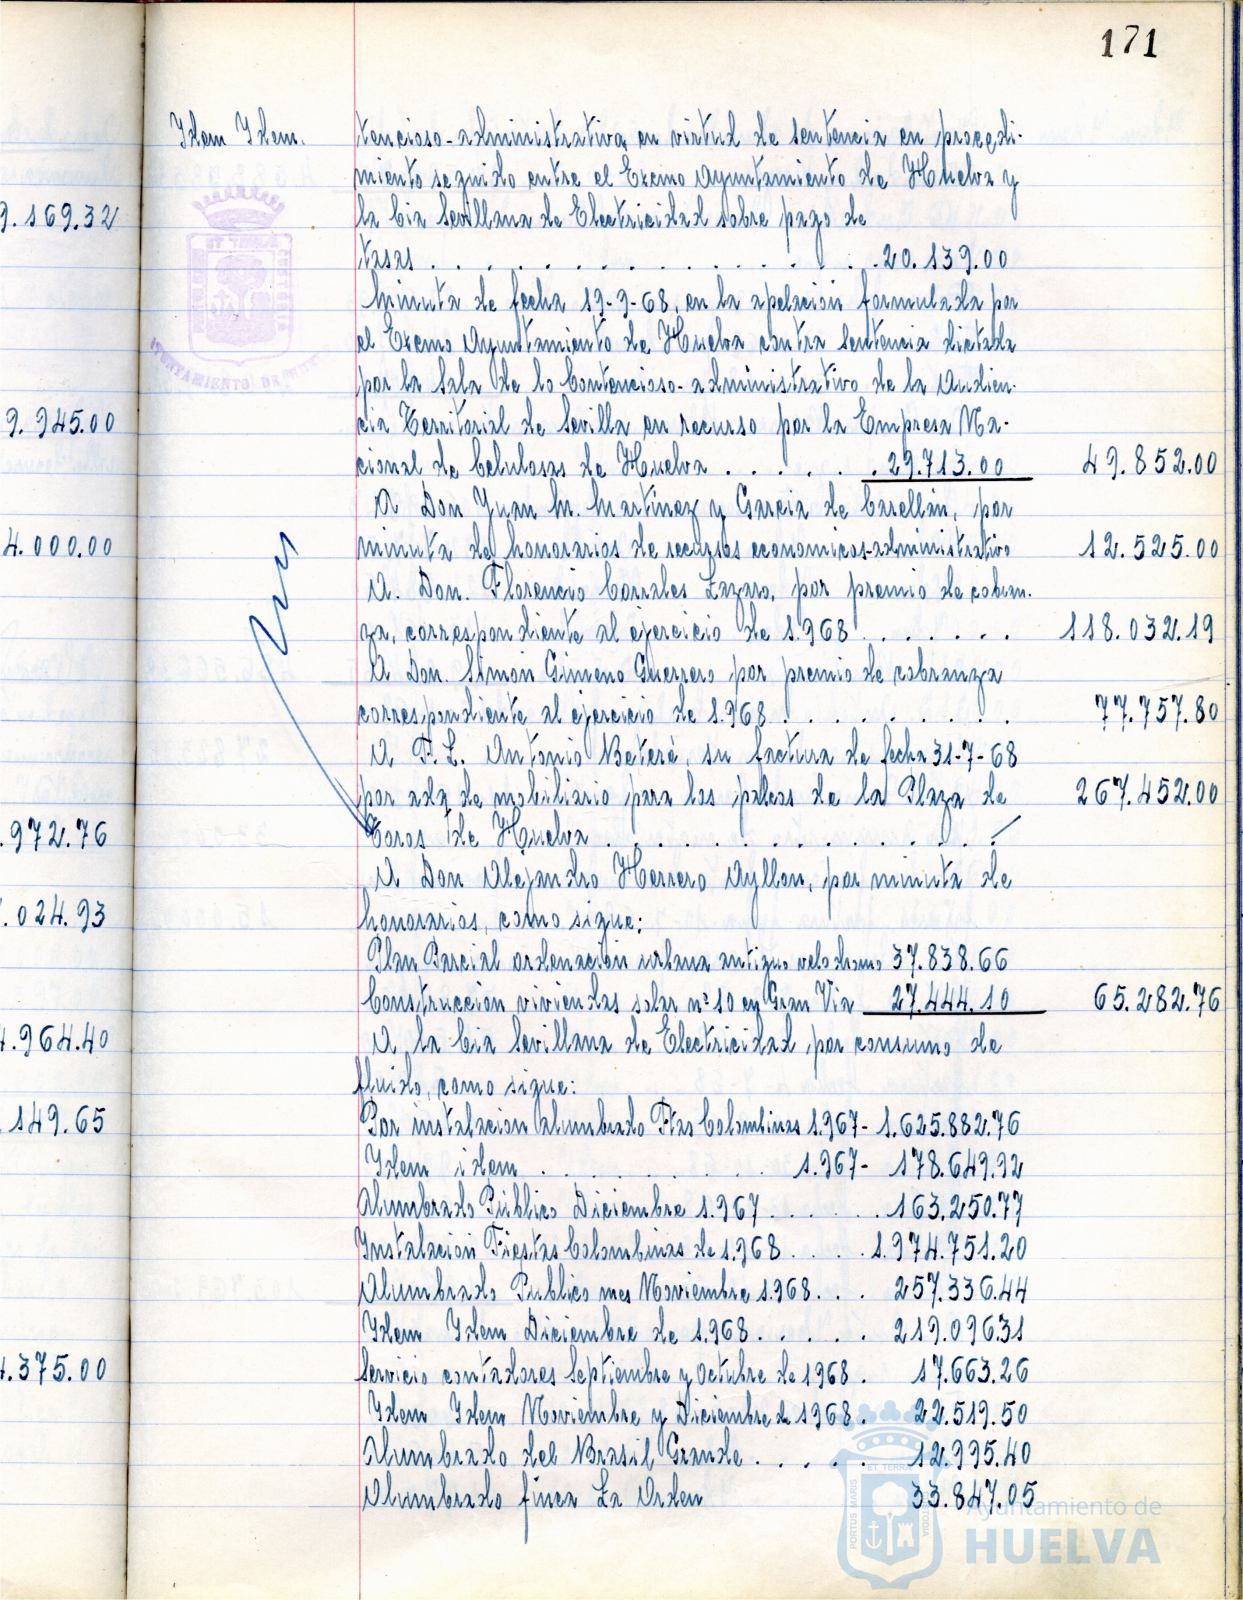 171
Idem Idem.
tencioso-administrativa, en virtud de sentencia en procedi-
miento seguido entre el Excmo Ayuntamiento de Huelva y
9.169.32
la Cia Sevillana de Electricidad sobre pago de
tasas . . . . . . . . . . . . . . . . . 20.139.00
Minuta de fecha 19-9-68, en la apelación formulada por
el Excmo Ayuntamiento de Huelva contra sentencia dictada
por la Sala de lo Contencioso-administrativo de la Audien-
9.945.00
cia Territorial de Sevilla en recurso por la Empresa Na-
cional de Celulosas de Huelva . . . . . . 29.713.00 49.852.00
A Don Juan M. Martínez y Garcia de Carellán, por
4.000.00
minuta de honorarios de recursos economicos-administrativo 12.525.00
A. Don. Florencio Corrales Lazaro, por premio de cobran-
za, correspondiente al ejercicio de 1.968 . . . . . . 118.032.19
A Don. Simón Gimeno Guerrero por premio de cobranza
correspondiente al ejercicio de 1.968 . . . . . . . . 77.757.80
A F.L. Antonio Beteré, su factura de fecha 31-7-68
por adq de mobiliario para los palcos de la Plaza de 267.452.00
.972.76
Toros de Huelva . . . . . . . . . . . . .
A Don Alejandro Herrero Ayllon, por minuta de
.024.93
honorarios, como sigue:
Plan Parcial ordenación urbana antiguo velodromo 37.838.66
Construcción viviendas solar nº 10 en Gran Via 27.444.10 65.282.76
.964.40
A la Cia Sevillana de Electricidad, por consumo de
fluido, como sigue:
.149.65
Por instalacion alumbrado Ftas Colombinas 1.967- 1.625.882.76
Idem idem . . . . . . . 1.967- 178.649.92
Alumbrado Público Diciembre 1.967 . . . . . . 163.250.77
Instalación Fiestas Colombinas de 1.968 . . . . 1.974.751.20
Alumbrado Publico mes Noviembre 1.968. . . 257.336.44
Idem Idem Diciembre de 1.968 . . . . . 219.096.31
.375.00
Servicio contadores Septiembre y Octubre de 1968 . 17.663.26
Idem Idem Noviembre y Diciembre de 1968. 22.519.50
Alumbrado del Brasil Grande . . . . . 12.995.40
Alumbrado finca La Orden 33.847.05
Ayuntamiento de
HUELVA